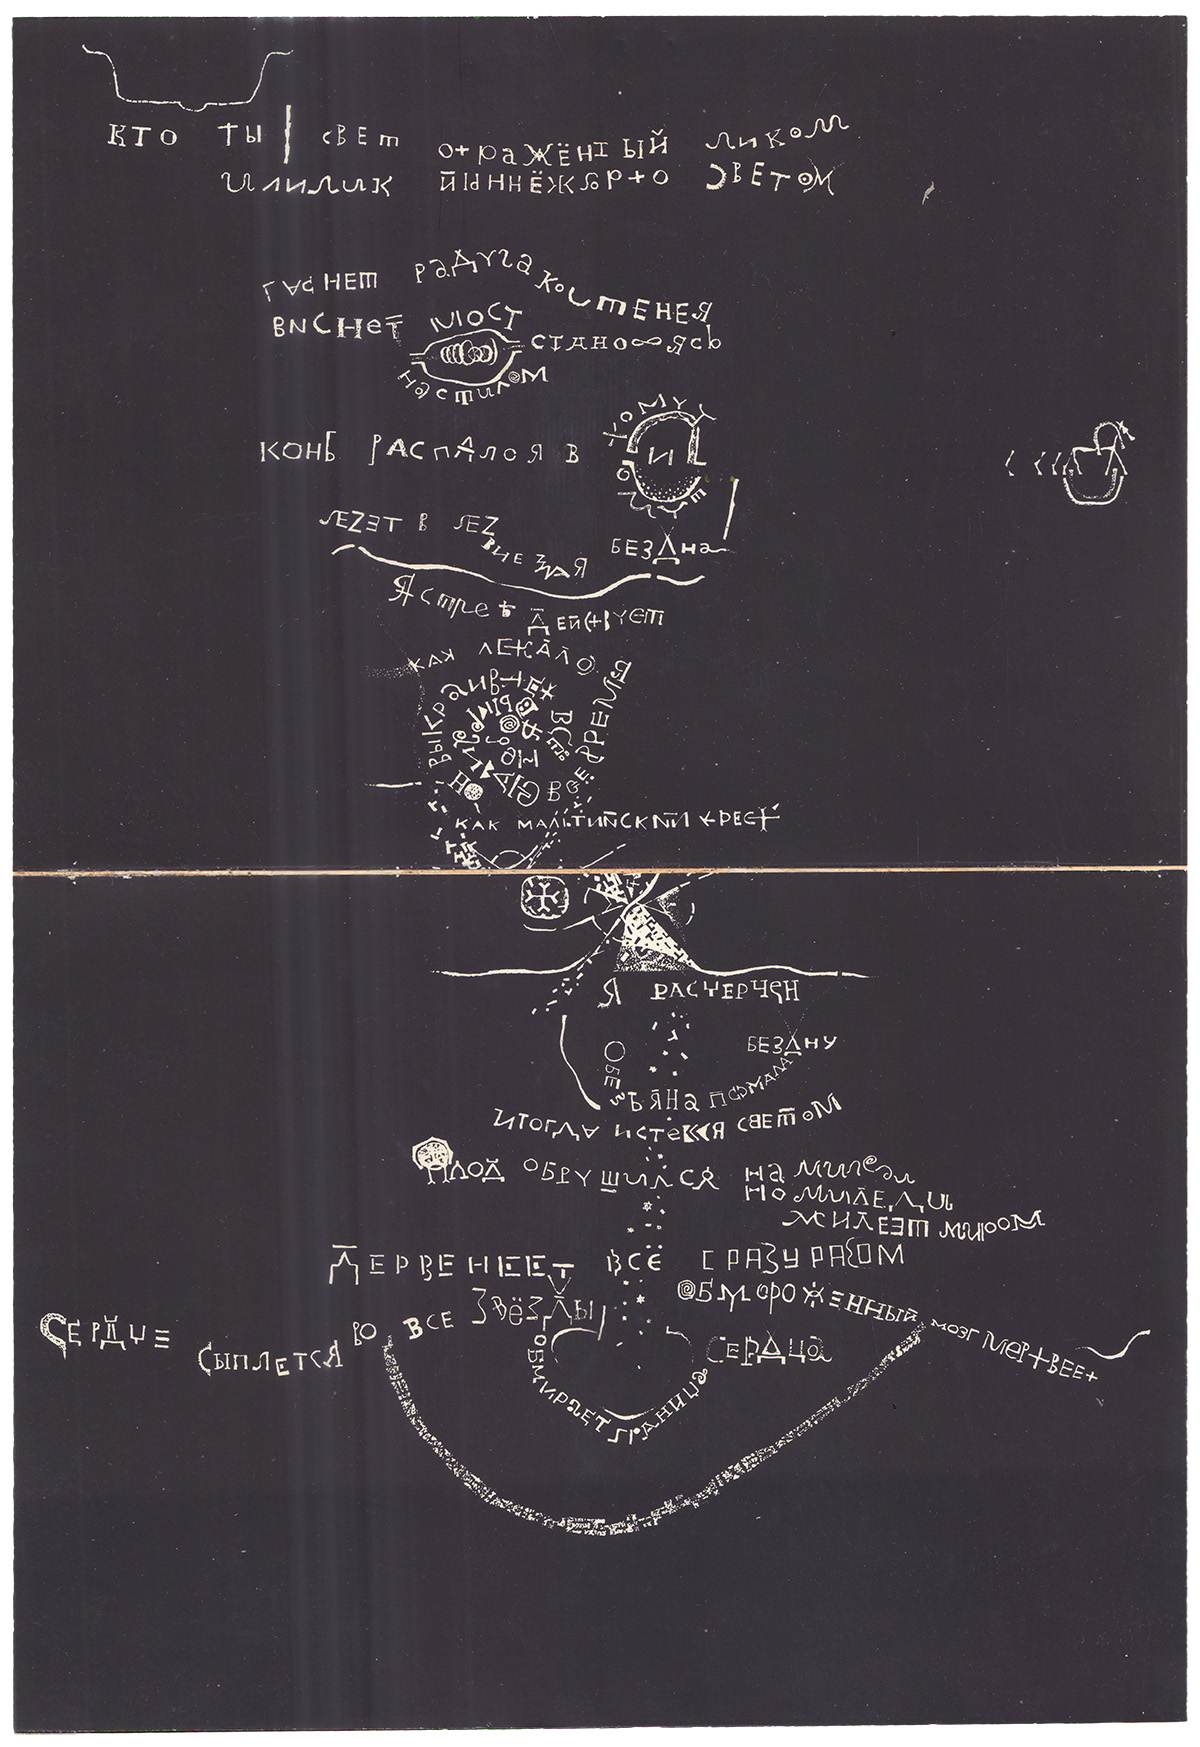 КТО ТЫ СВЕТ ОТРАЖЁННЫЙ ЛИКОМ
ИЛИ ЛИК ЙЫННЁЖАРТО СВЕТОМ
ГАСНЕТ РАДУГА КОЧЕНЕЯ
ВИСНЕТ МОСТ СТАНОВЯСЬ
НАСТИЛОМ
КОНЬ РАСПАЛСЯ В ТОМУ
И
ТОМУ ЖЕ
ЛЕЗЕТ В ЛЕЗ
ВИЕ ЗЛАЯ БЕЗДНА
ЯСТРЕБ ДЕЙСТВУЕТ
КАК ЛЕКАЛО
ВЫКРАИВАЕТ ВСЁ ВРЕМЯ
НО
КАК МАЛЬТИЙСКИЙ КРЕСТ
Я РАСЧЕРЧЕН
БЕЗДНУ
ОБЕЗЬЯНА ПОЙМАЛА
И ТОГДА ИСТЕКАЯ СВЕТОМ
ПЛОД ОБРУШИЛСЯ НА МИЛЕДИ
НО МИЛЕДИ
ЖИЛЕЭТ МИРОМ
ДЕРВЕНЕЕТ ВСЁ СРАЗУ РАЗОМ
ОБМОРОЖЕННЫЙ МОЗГ МЕРТВЕЕТ
СЕРДЦЕ СЫПЛЕТСЯ ВО ВСЕ ЗВЁЗДЫ
ОБМИРАЕТ ГРАНИЦА СЕРДЦА